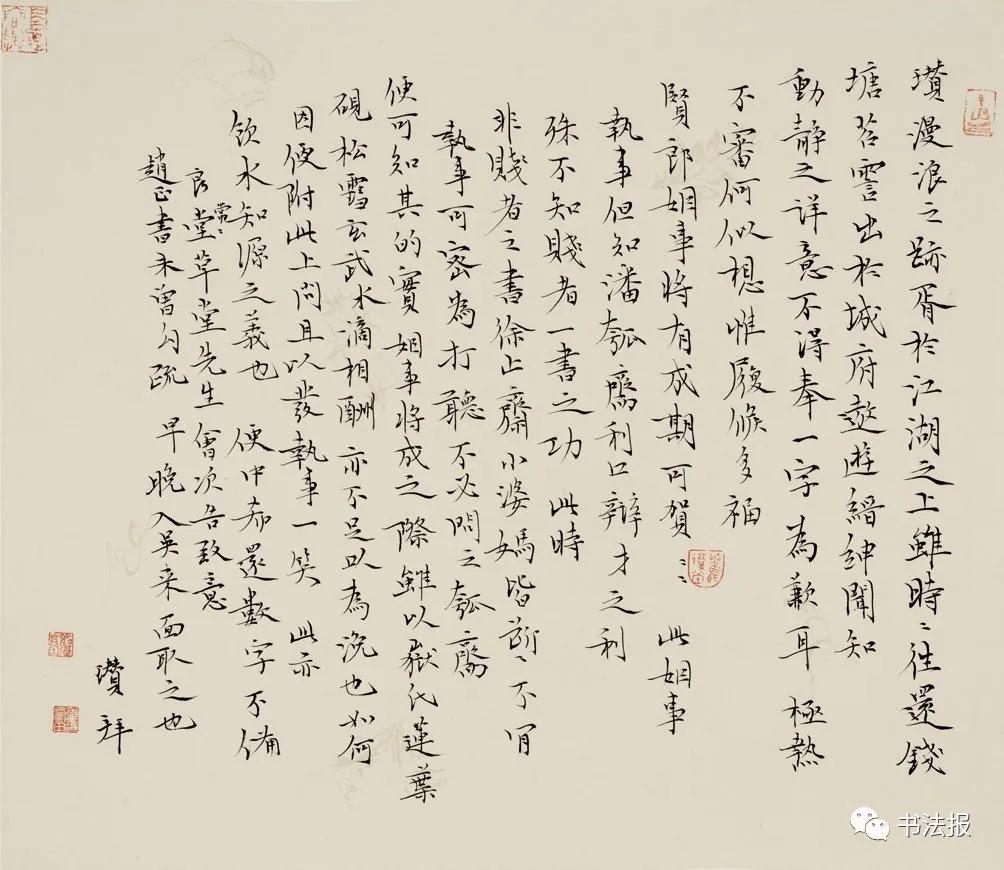 瓚漫浪之跡胥於江湖之上雖時〻往還錢
塘苕霅出於城府遨遊縉紳聞知
動靜之詳意不得奉一字為歉耳極熱
不審何似想惟履候多福
賢郎姻事將有成期可賀〻〻此姻事
執事但知潘瓠齋利口辯才之利
殊不知賤者一書之功此時
非賤者之書徐止齋小婆媽皆斷〻不肯
執事可密為打聽不必問之瓠齋
便可知其的實姻事將成之際雖以嶽氏蓮葉
硯松雪玄武水滴相酬亦不足以為洗也如何
因便附此上問且以發執事一笑此亦
飲水知源之義也便中希還數字不備
良堂草堂先生會次告致意
常〻
趙正書未曾勾疏早晚入吳來面取之也
瓚拜
书法报